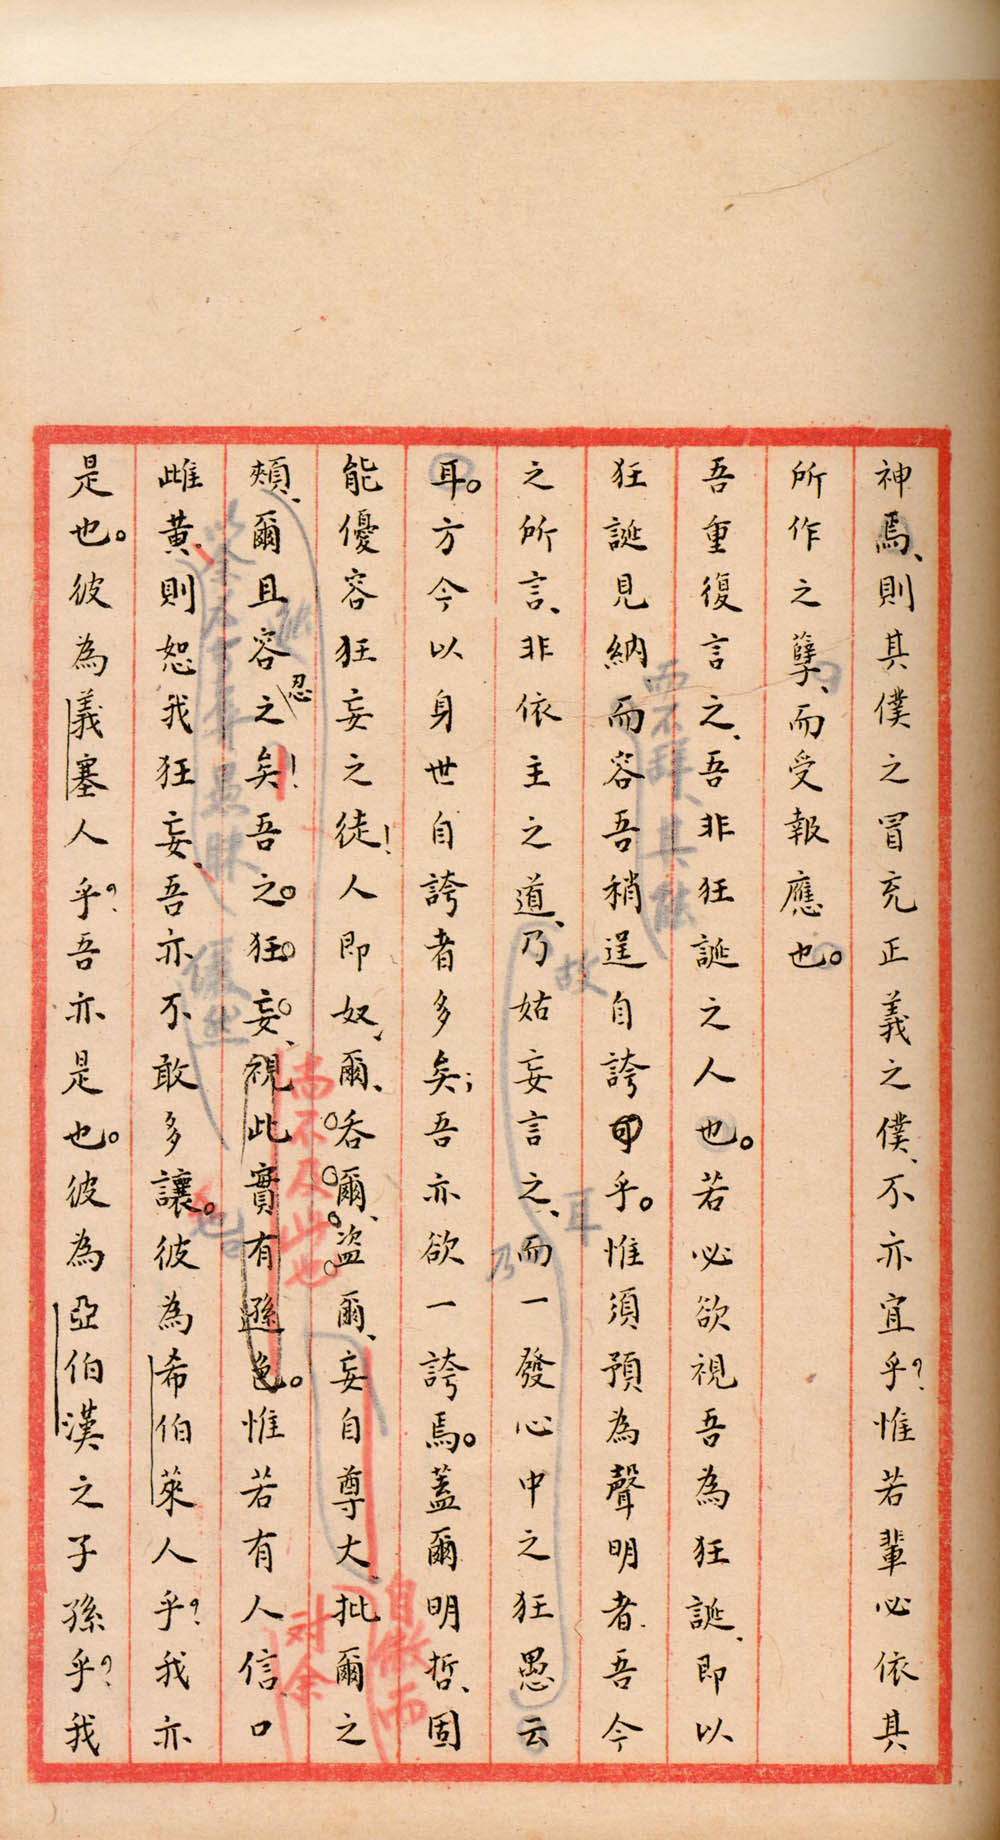 神焉、則其僕之冒充正義之僕、不亦宜乎?惟若輩必依其
所作之孽、而受報應也。
吾重復言之、吾非狂誕之人也。若必欲視吾為狂誕、即以
狂誕見納、而容吾稍逞自誇可乎。惟須預為聲明者、吾今
而不擇其能
之所言、非依主之道、乃姑妄言之、而一發心中之狂愚云
故
耳
乃
耳。方今以身世自誇者多矣;吾亦欲一誇焉。蓋爾明哲、固
能優容狂妄之徒!人即奴爾、吞爾、盜爾、妄自尊大、批爾之
自傲而
頰、爾且容忍之矣!吾之狂妄、視此實有遜色。惟若有人信口
尚不及此也
对余
雌黃、則恕我狂妄、吾亦不敢多讓。彼為希伯萊人乎?我亦
是也。彼為義塞人乎?吾亦是也。彼為亞伯漢之子孫乎?我